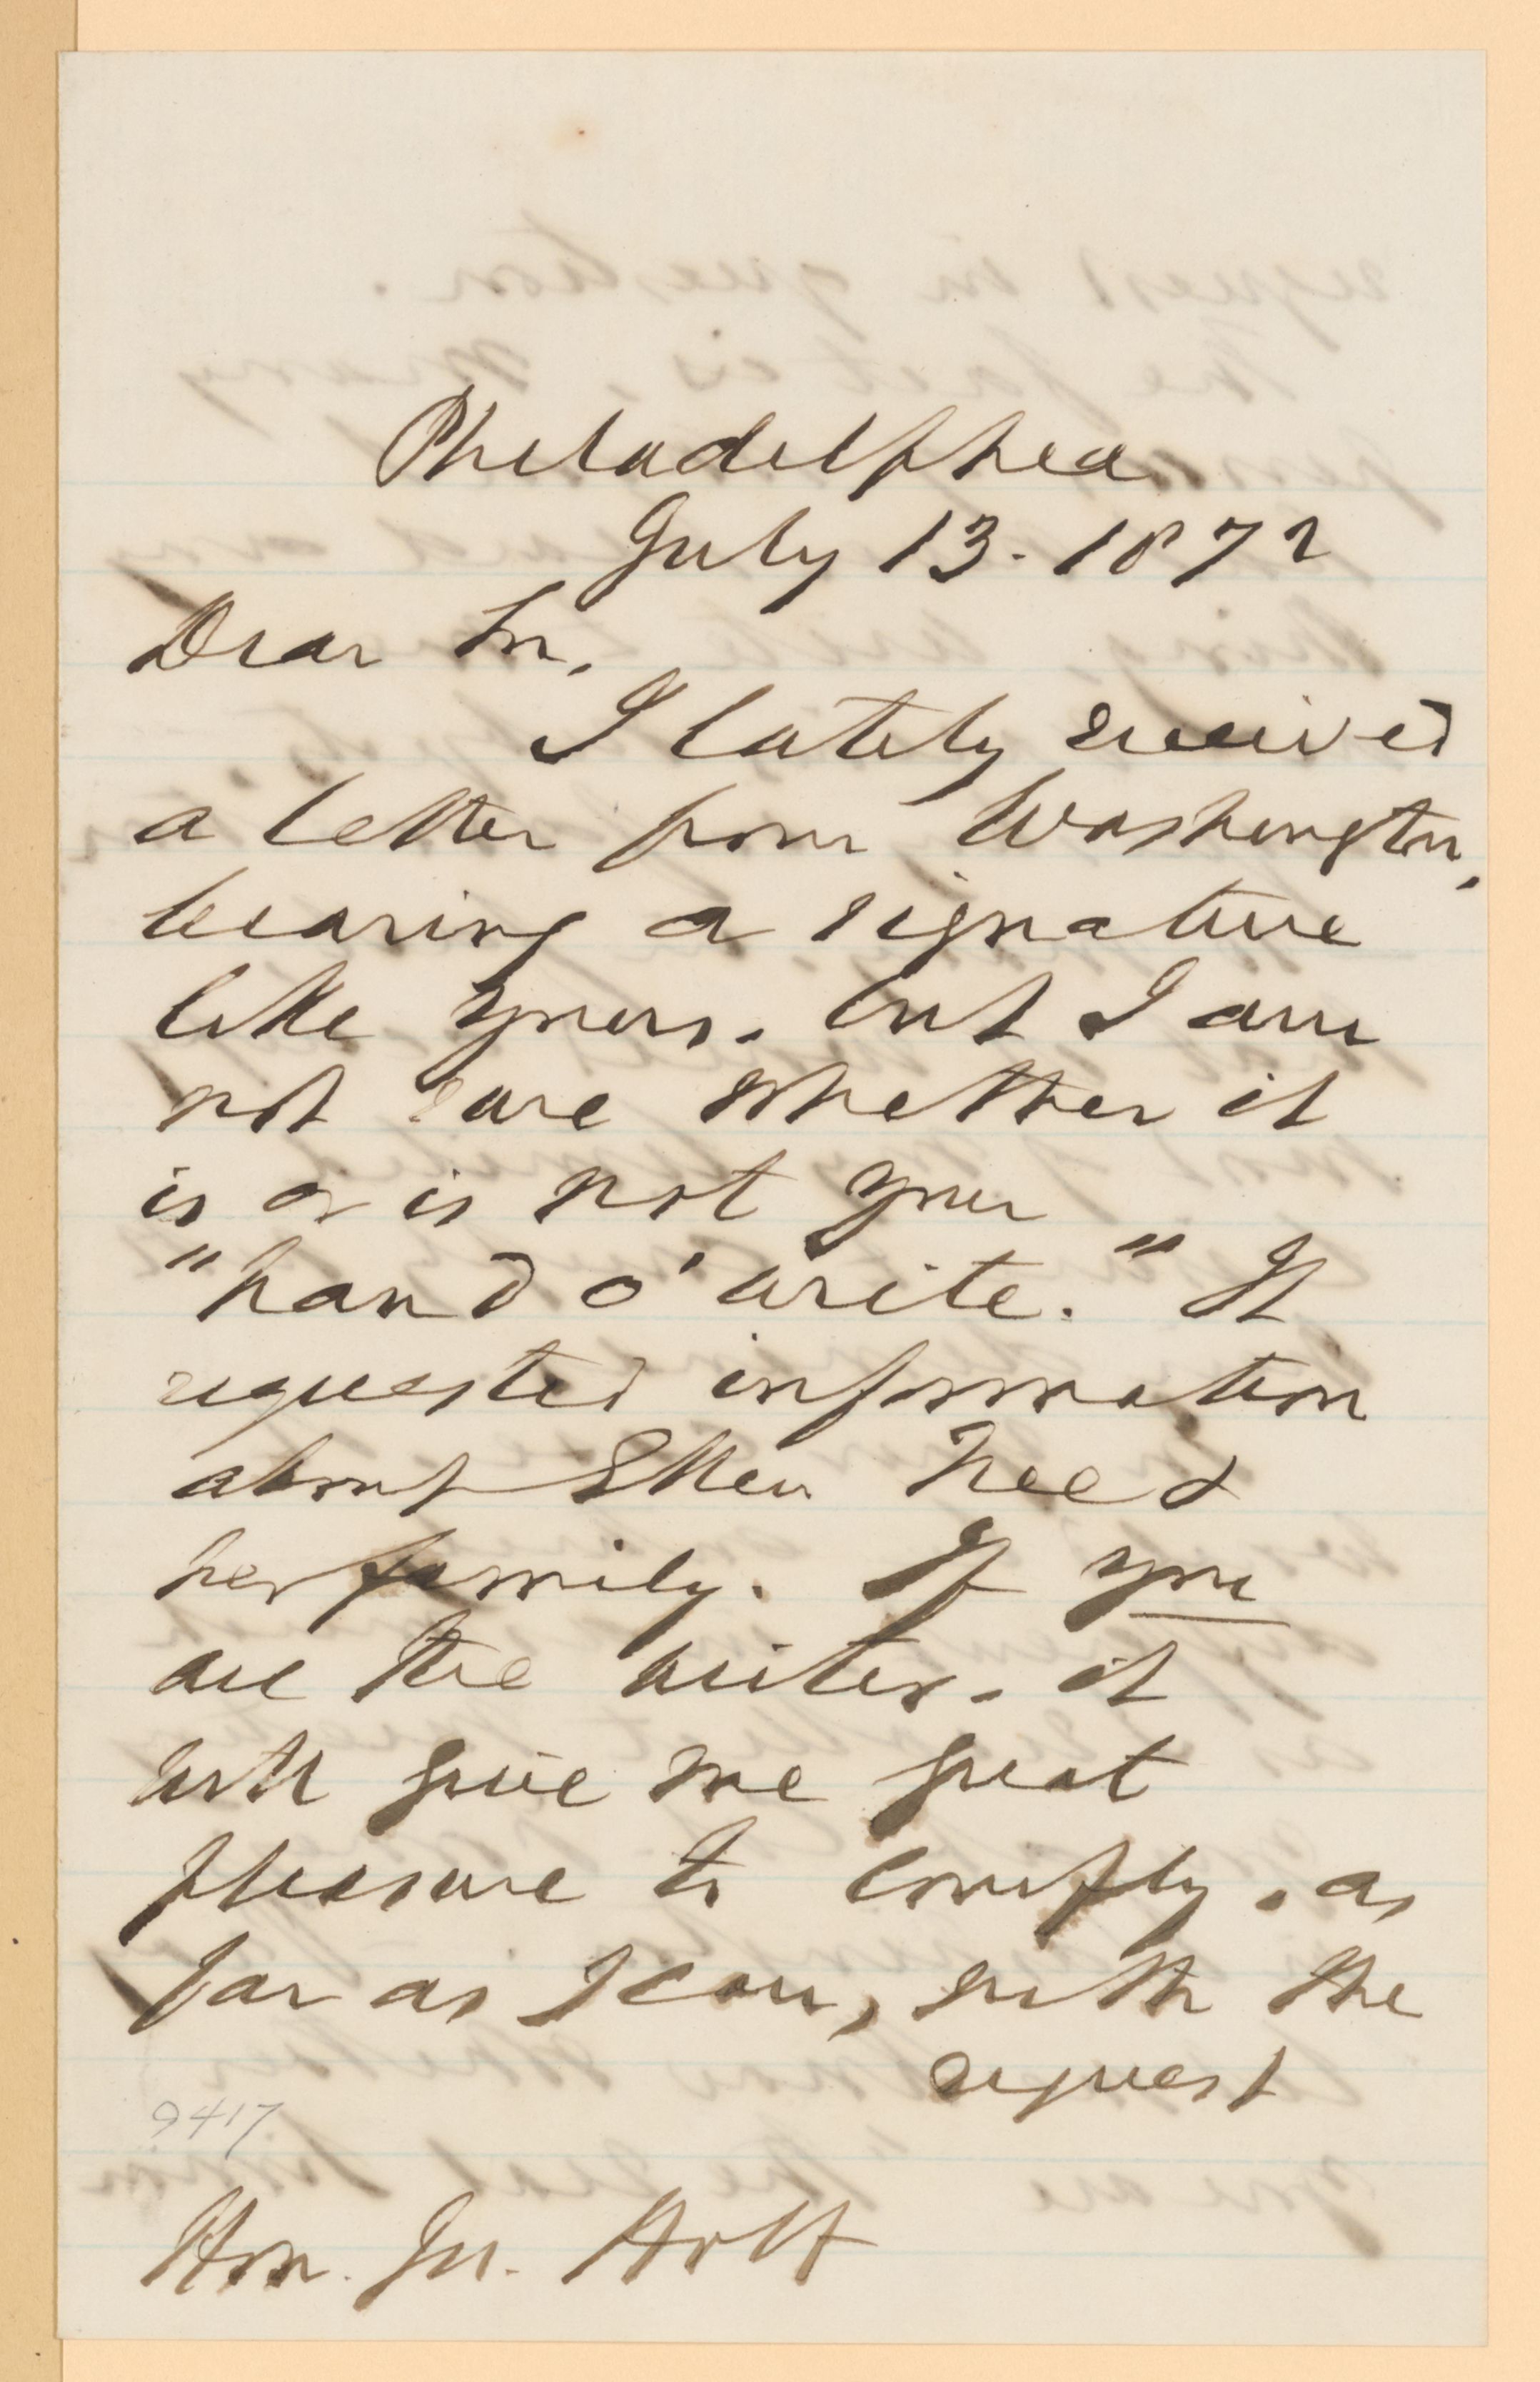 Philadelphia
July 13. 1872
Dear Sir,
I lately received
a letter from Washington,
bearing a signature
like yours. but I am
not sure whether it
is or is not your
"hand o' write." It
requested information
about Ellen &
her family. If you
are the writer. it
will give me great
pleasure to comply. as
far as I can, with the
request
9417
Hon. Jos. Holt